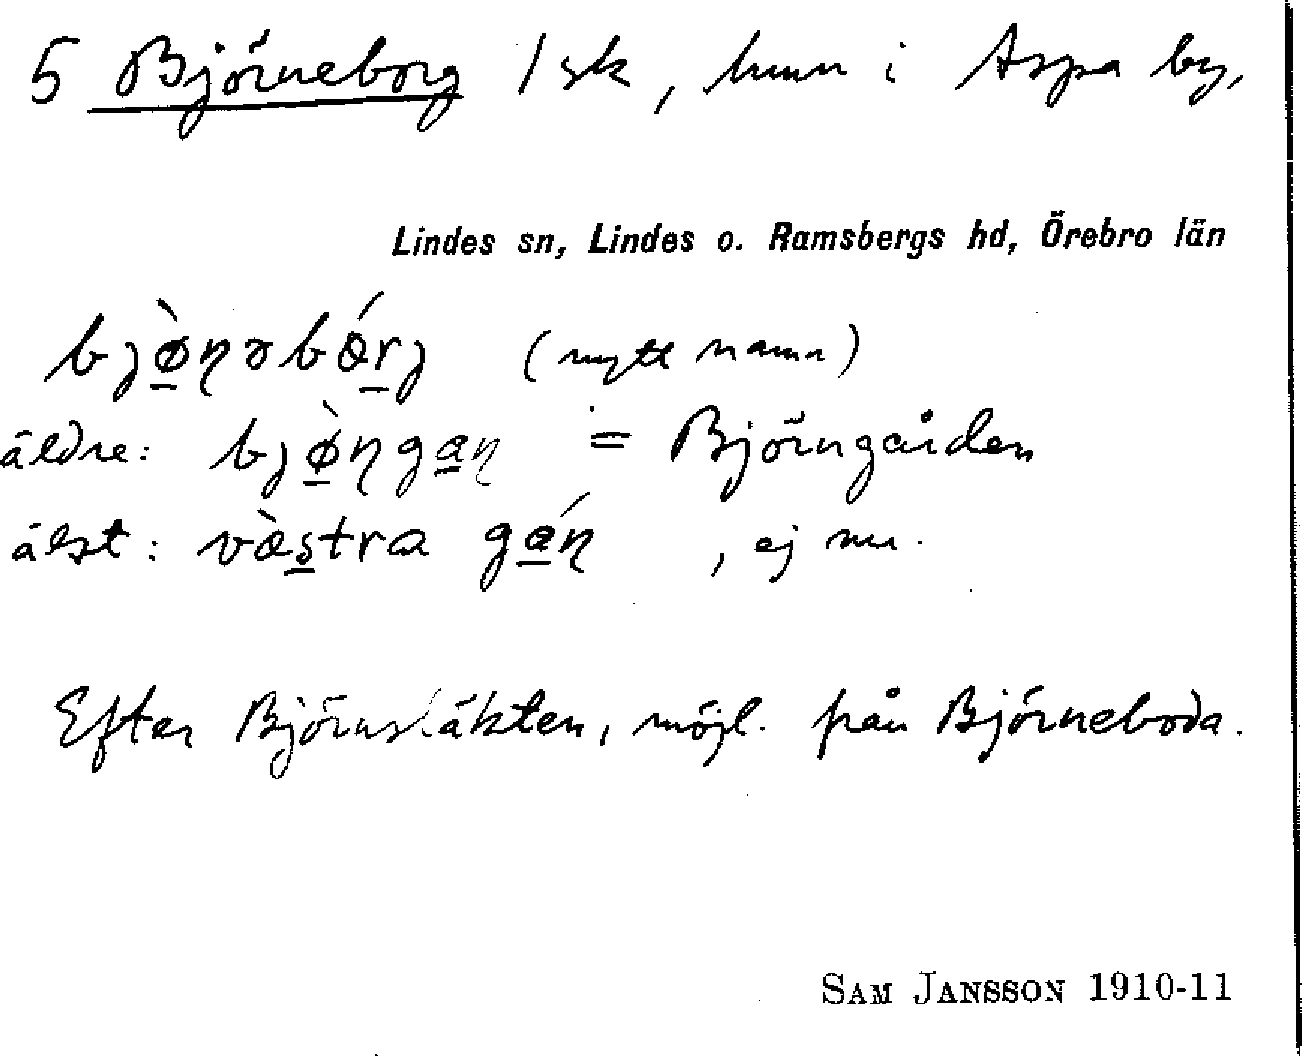 5 Björneborg 1 sk, hmn i Aspa by,
Lindes sn, Lindes o. Ramsbergs hd, Örebro län
(nytt namn)
äldre: = Björngården
älst: , ej nu.
Efter Björnsläkten, möjl. från Björneboda.
SAM JANSSON 1910-11